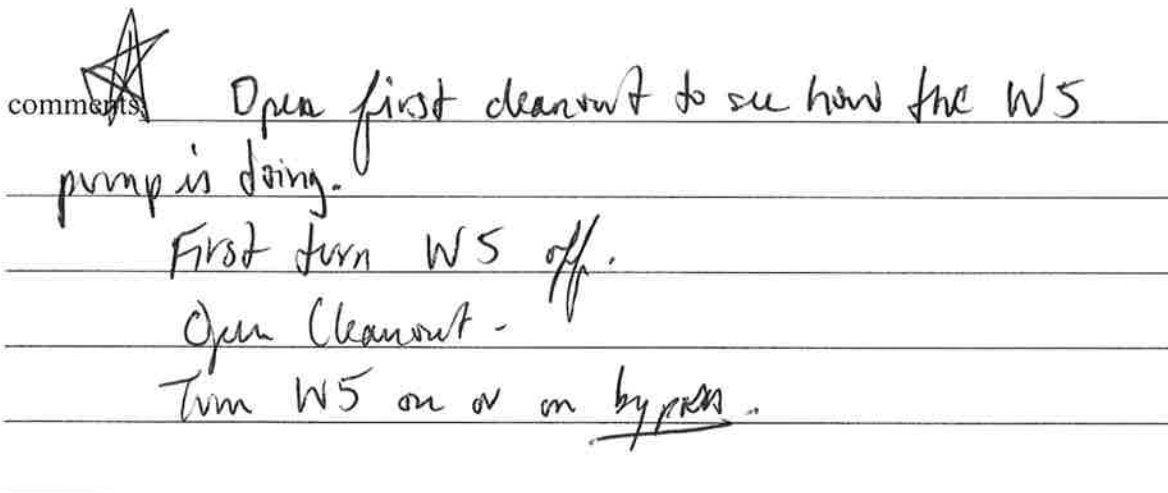 comments: Open first cleanout to see how the W5
pump is doing.
First turn W5 off.
Open Cleanout.
Turn W5 on or on bypass.